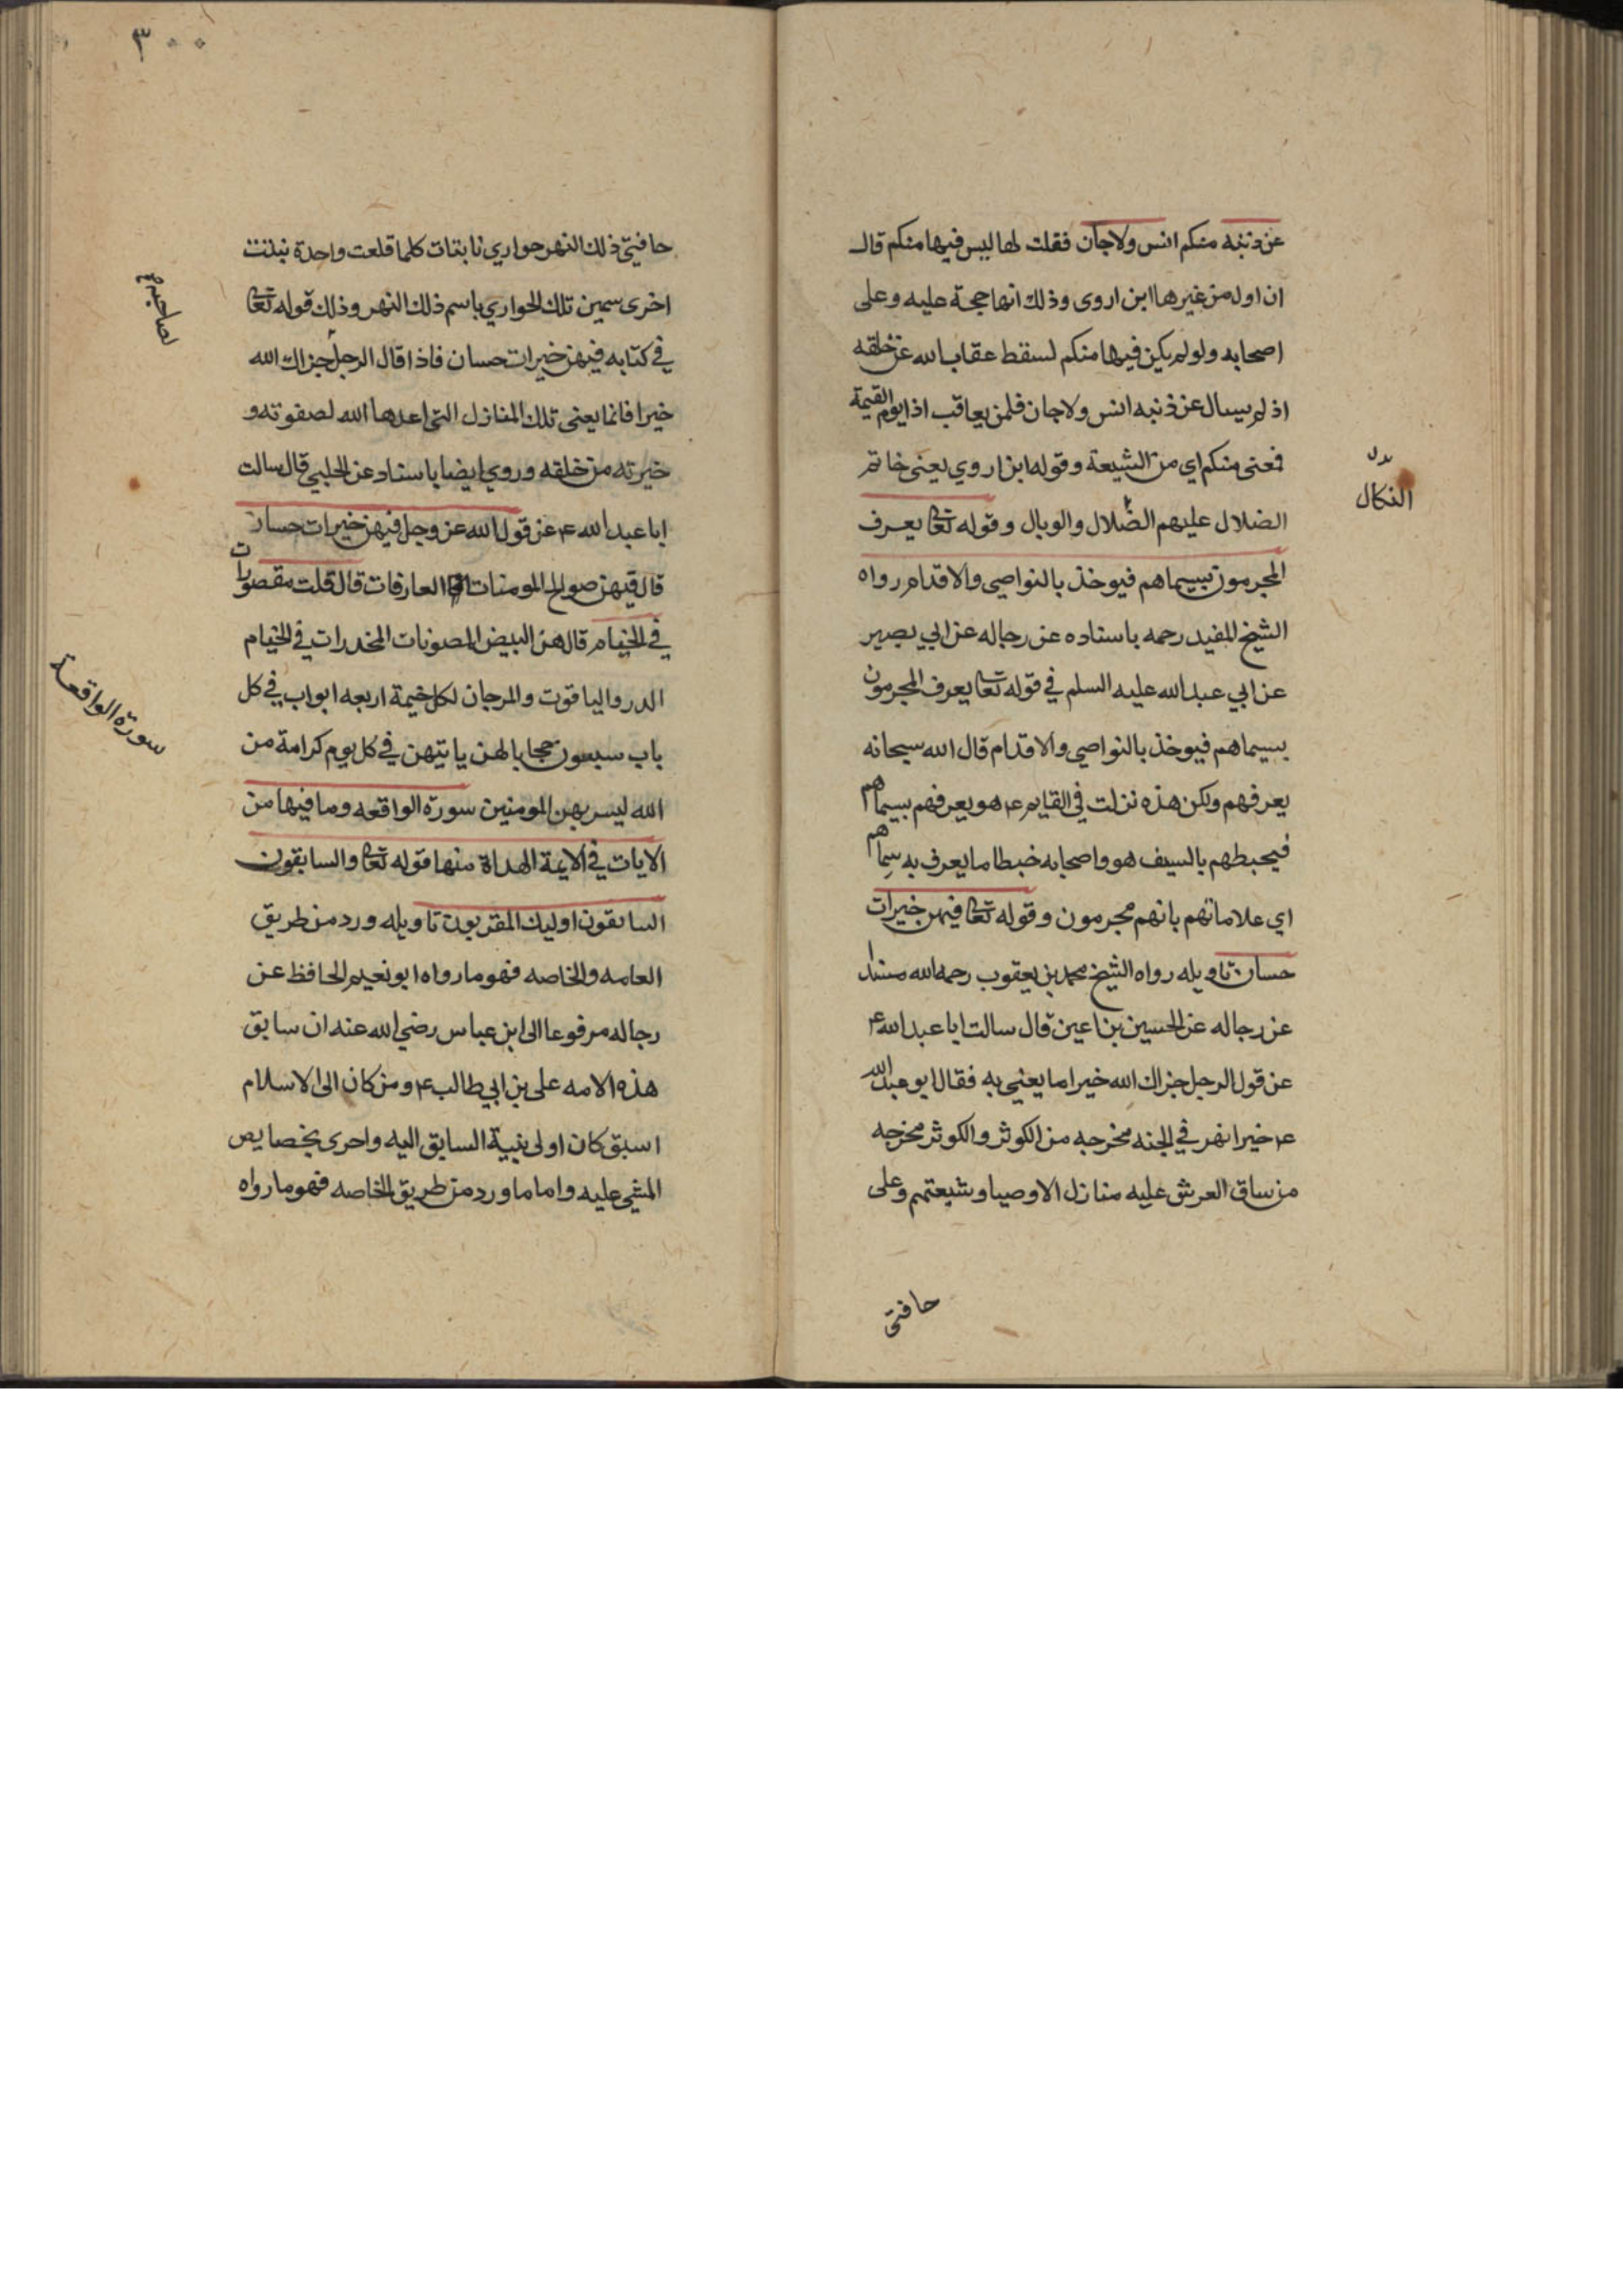 عن ذنبه منكم انس ولا جان فقلت لها ليس فيها منكم قال
ان اول من غيرها ابن اروى وذلك انها حجة عليه وعلى
اصحابه ولو لم يكن فيها منكم لسقط عقاب الله عن خلقه
اذ لم يسال عن ذنبه انس ولا جان فلمن يعاقب اذا يوم القيمة
فعنى منكم اي من الشيعة وقوله ابن اروي يعنى خاتم
الضلال عليهم الضلال والوبال وقوله تعا يعرف
المجرمون بسيماهم فيوخذ بالنواصي والاقدام رواه
الشيخ المفيد رحمه باسناده عن رجاله عن ابي بصير
عن ابي عبد الله عليه السلم في قوله تعا يعرف المجرمون
بسيماهم فيوخذ بالنواصي والاقدام قال الله سبحانه
يعرفهم ولكن هذه نزلت في القايم ع هو يعرفهم بسيماهم
فيحبطهم بالسيف هو واصحابه خبطا ما يعرف به سيماهم
اي علاماتهم بانهم مجرمون وقوله تعا فيهن خيرات
حسان تاويله رواه الشيخ محمد بن يعقوب رحمه الله مسندا
عن رجاله عن الحسين بن اعين قال سالت ابا عبد الله ع
عن قول الرجل جزاك الله خيرا ما يعني به فقال ابو عبد الله
ع خيرا نهر في الجنه مخرجه من الكوثر والكوثر مخرجه
من ساق العرش عليه منازل الاوصيا وشيعتهم وعلى
حافتى
بدل
النكال
٣٠٠
حافيتي ذلك النهر حواري نابتات كلما قلعت واحدة نبتت
اخرى سمين تلك الحواري باسم ذلك النهر وذلك قوله تعا
في كتابه فيهن خيرات حسان فاذا قال الرجل جزاك الله
خيرا فانما يعنى تلك المنازل التى اعدها الله لصفوته و
خيرته من خلقه وروي ايضا باسناد عن الحلبي قال سالت
ابا عبد الله ع عن قول الله عز وجل فيهن خيرات حسان
قال فيهن صوالح المومنات العارفات قال قلت مقصورات
في الخيام قال هن البيض المصونات المخدرات في الخيام
الدر والياقوت والمرجان لكل خيمة اربعه ابواب في كل
باب سبعون حجابا لهن ياتيهن في كل يوم كرامة من
الله ليسر بهن المومنين سورة الواقعه وما فيها من
الايات في الايمة الهداة منها قوله تعا والسابقون
السابقون اوليك المقربون تاويله ورد من طريق
العامه والخاصه فهو ما رواه ابو نعيم الحافظ عن
رجاله مرفوعا الى ابن عباس رضي الله عنه ان سابق
هذه الامه على بن ابي طالب ع ومن كان الى الاسلام
اسبق كان اولى بنبية السابق اليه واحرى بخصايص
المشي عليه واما ما ورد من طريق الخاصه فهو ما رواه
لصاحبه ع
سورة الواقعة